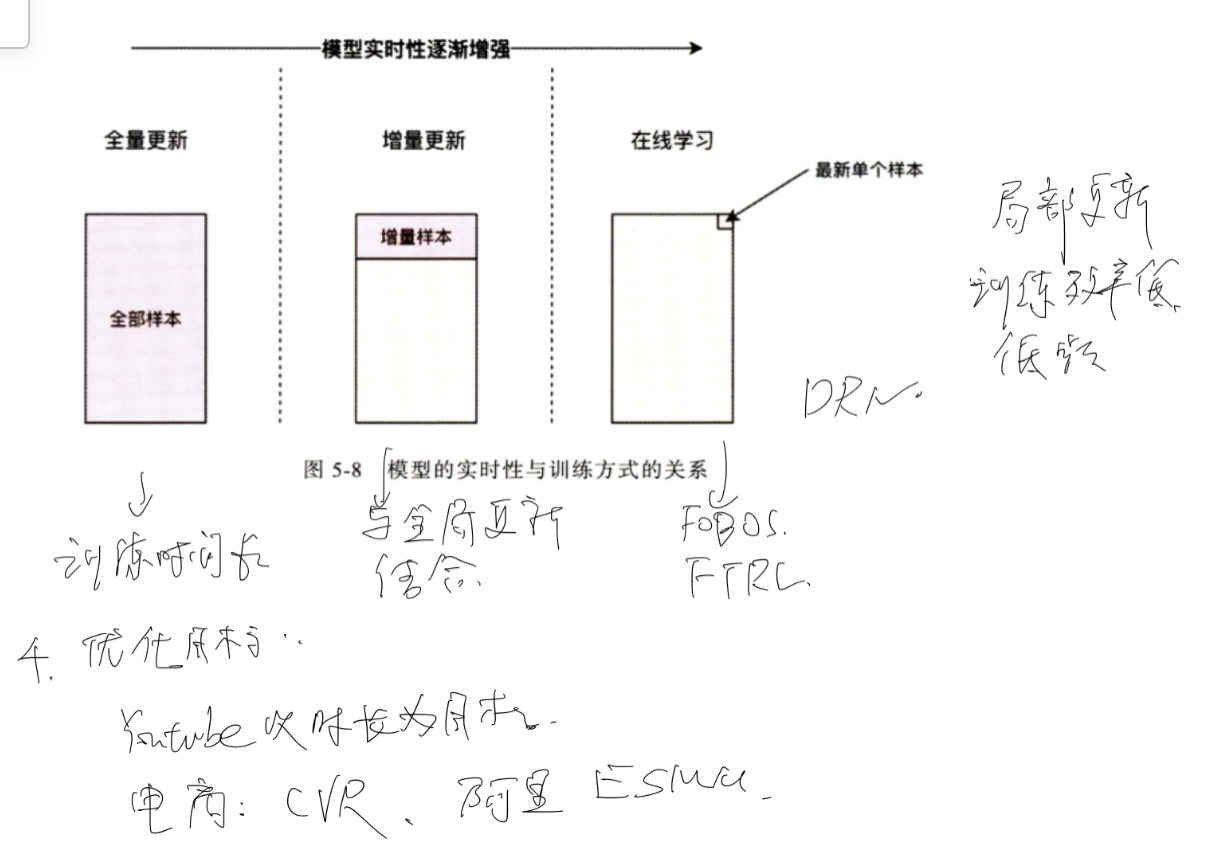 模型实时性逐渐增强
全量更新
增量更新
在线学习
最新单个样本
增量样本
全部样本
局部更新
训练效率低
低频
DRN.
图 5-8 模型的实时性与训练方式的关系
训练时间长
与全局更新
结合.
FOBOS.
FTRL.
4. 优化目标:
Youtube 以时长为目标.
电商: CVR、阿里 ESMM.